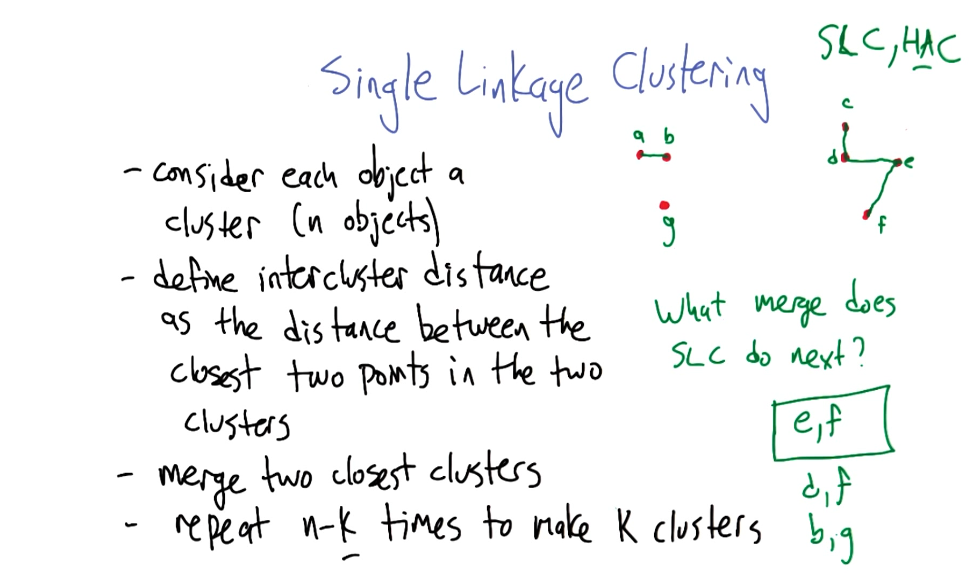 SLC, HAC
Single Linkage Clustering
- consider each object a
cluster (n objects)
- define intercluster distance
as the distance between the
closest two points in the two
clusters
- merge two closest clusters
- repeat n-K times to make K clusters
a b
g
c
d e
f
What merge does
SLC do next?
e,f
d,f
b,g